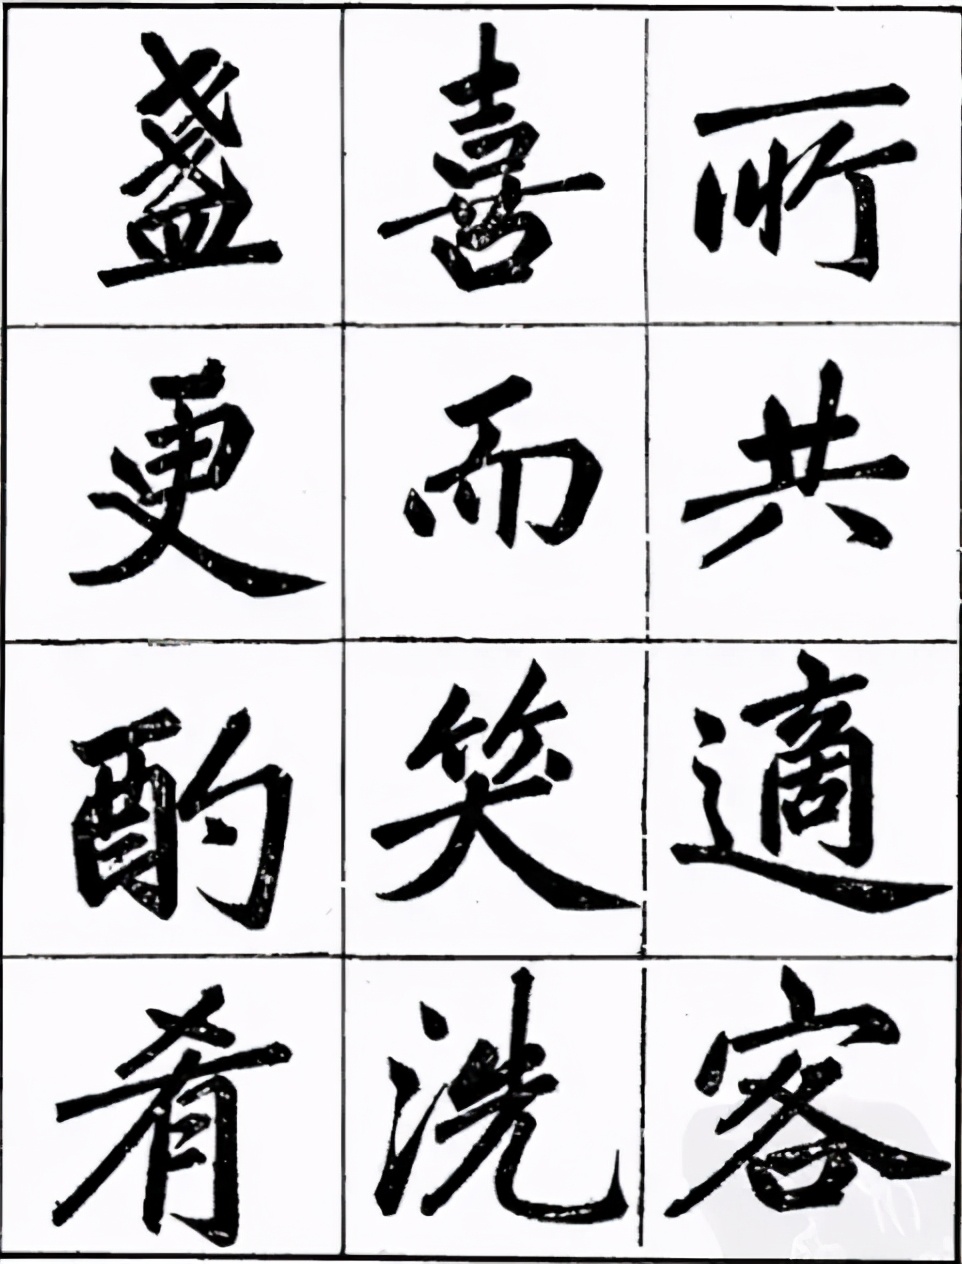 所共適客
喜而笑洗
盞更酌肴